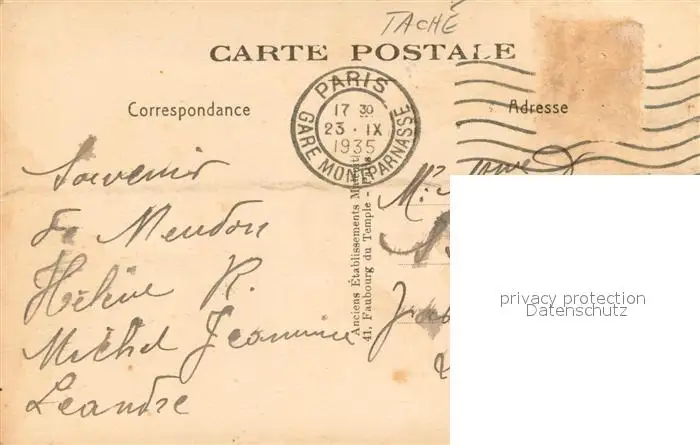 TACHÉ
CARTE POSTALE
Correspondance
Adresse
PARIS
17 30
23 · IX
1935
GARE MONTPARNASSE
Souvenir
de Meudon
Hélène R.
Michel Jeannine
Leandre
Anciens Établissements
41, Faubourg du Temple - Paris
privacy protection
Datenschutz